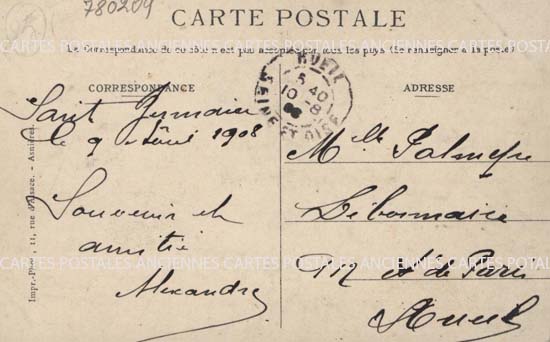 780204
CARTE POSTALE
La Correspondance au recto n'est pas acceptée par tous les pays (Se renseigner à la poste)
CORRESPONDANCE
Saint Germain
le 9 Août 1908
Souvenir et
amitié
Alexandre
Impr.-Phot., 11, rue d'Alsace. - Asnières.
RUEIL
5 40
10 -8
08
SEINE ET OISE
ADRESSE
Mlle Palmyre
112 de Paris
Rueil
CARTES POSTALES ANCIENNES CARTES POSTALES ANCIENNES